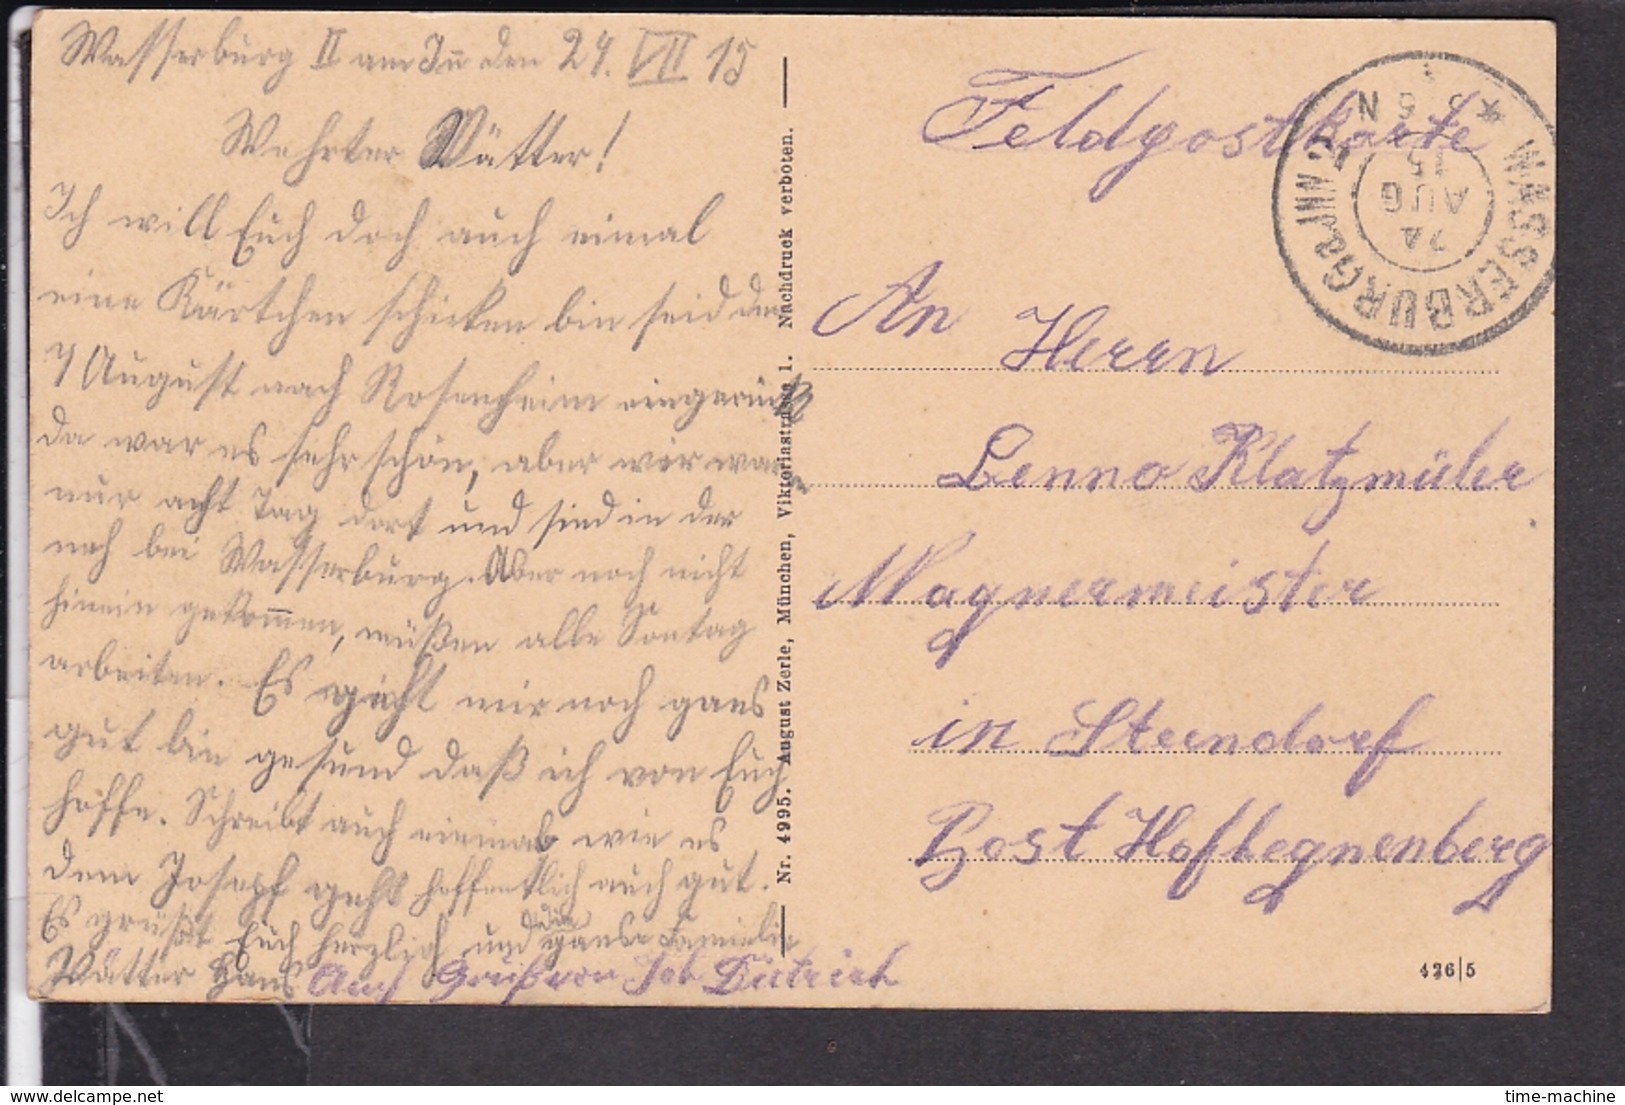 Wasserburg II am In den 24. VII 15
Wehrter Vätter!
Ich will Euch doch auch eimal
eine Kärtchen schicken bin seid den
7 August nach Rosenheim eingerückt
da war es sehr schön, aber wir waren
nur acht Tag dort und sind in der
neh bei Wasserburg. Aber noch nicht
hinein gekommen, müßen alle Sontag
arbeiten. Es geht mir noch gans
gut bin gesund daß ich von Euch
hoffe. Schreibt auch einmal wie es
dem Josepf geht hoffentlich auch gut.
Es grüßt Euch herzlich und die ganse Familie
Vätter Hans Auf Gruß von Joh Dietrich
Nr. 4995. August Zerle, München, Viktoriastrasse 1. Nachdruck verboten.
Feldpostkarte
WASSERBURG a. INN
24
AUG
15
5 N
An Herrn
Benno Klatzmüller
Wagnermeister
in Steindorf
Post Hofhegnenberg
426/5
delcampe.net
time-machine